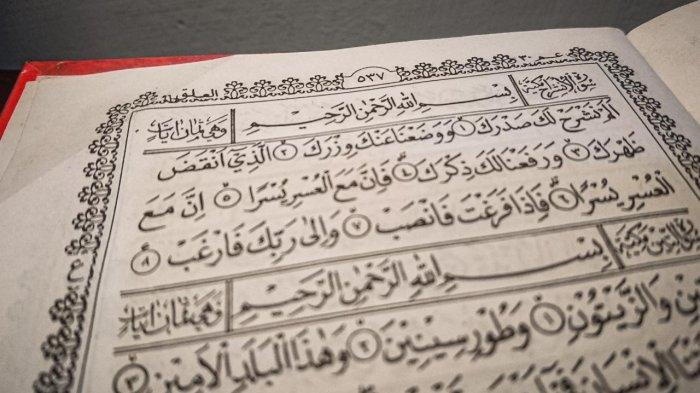 عم ٣٠ ٥٣٧
سورة الانشراح مكية بِسْمِ اللهِ الرَّحْمٰنِ الرَّحِيْمِ وهي ثمان آيات
اَلَمْ نَشْرَحْ لَكَ صَدْرَكَ ١ وَوَضَعْنَا عَنْكَ وِزْرَكَ ٢ الَّذِيْ اَنْقَضَ
ظَهْرَكَ ٣ وَرَفَعْنَا لَكَ ذِكْرَكَ ٤ فَاِنَّ مَعَ الْعُسْرِ يُسْرًا ٥ اِنَّ مَعَ
الْعُسْرِ يُسْرًا ٦ فَاِذَا فَرَغْتَ فَانْصَبْ ٧ وَاِلٰى رَبِّكَ فَارْغَبْ ٨
سورة التين مكية بِسْمِ اللهِ الرَّحْمٰنِ الرَّحِيْمِ وهي ثمان آيات
وَالزَّيْتُوْنِ ١ وَطُوْرِ سِيْنِيْنَ ٢ وَهٰذَا الْبَلَدِ الْاَمِيْنِ ٣
الْاِنْسَانَ